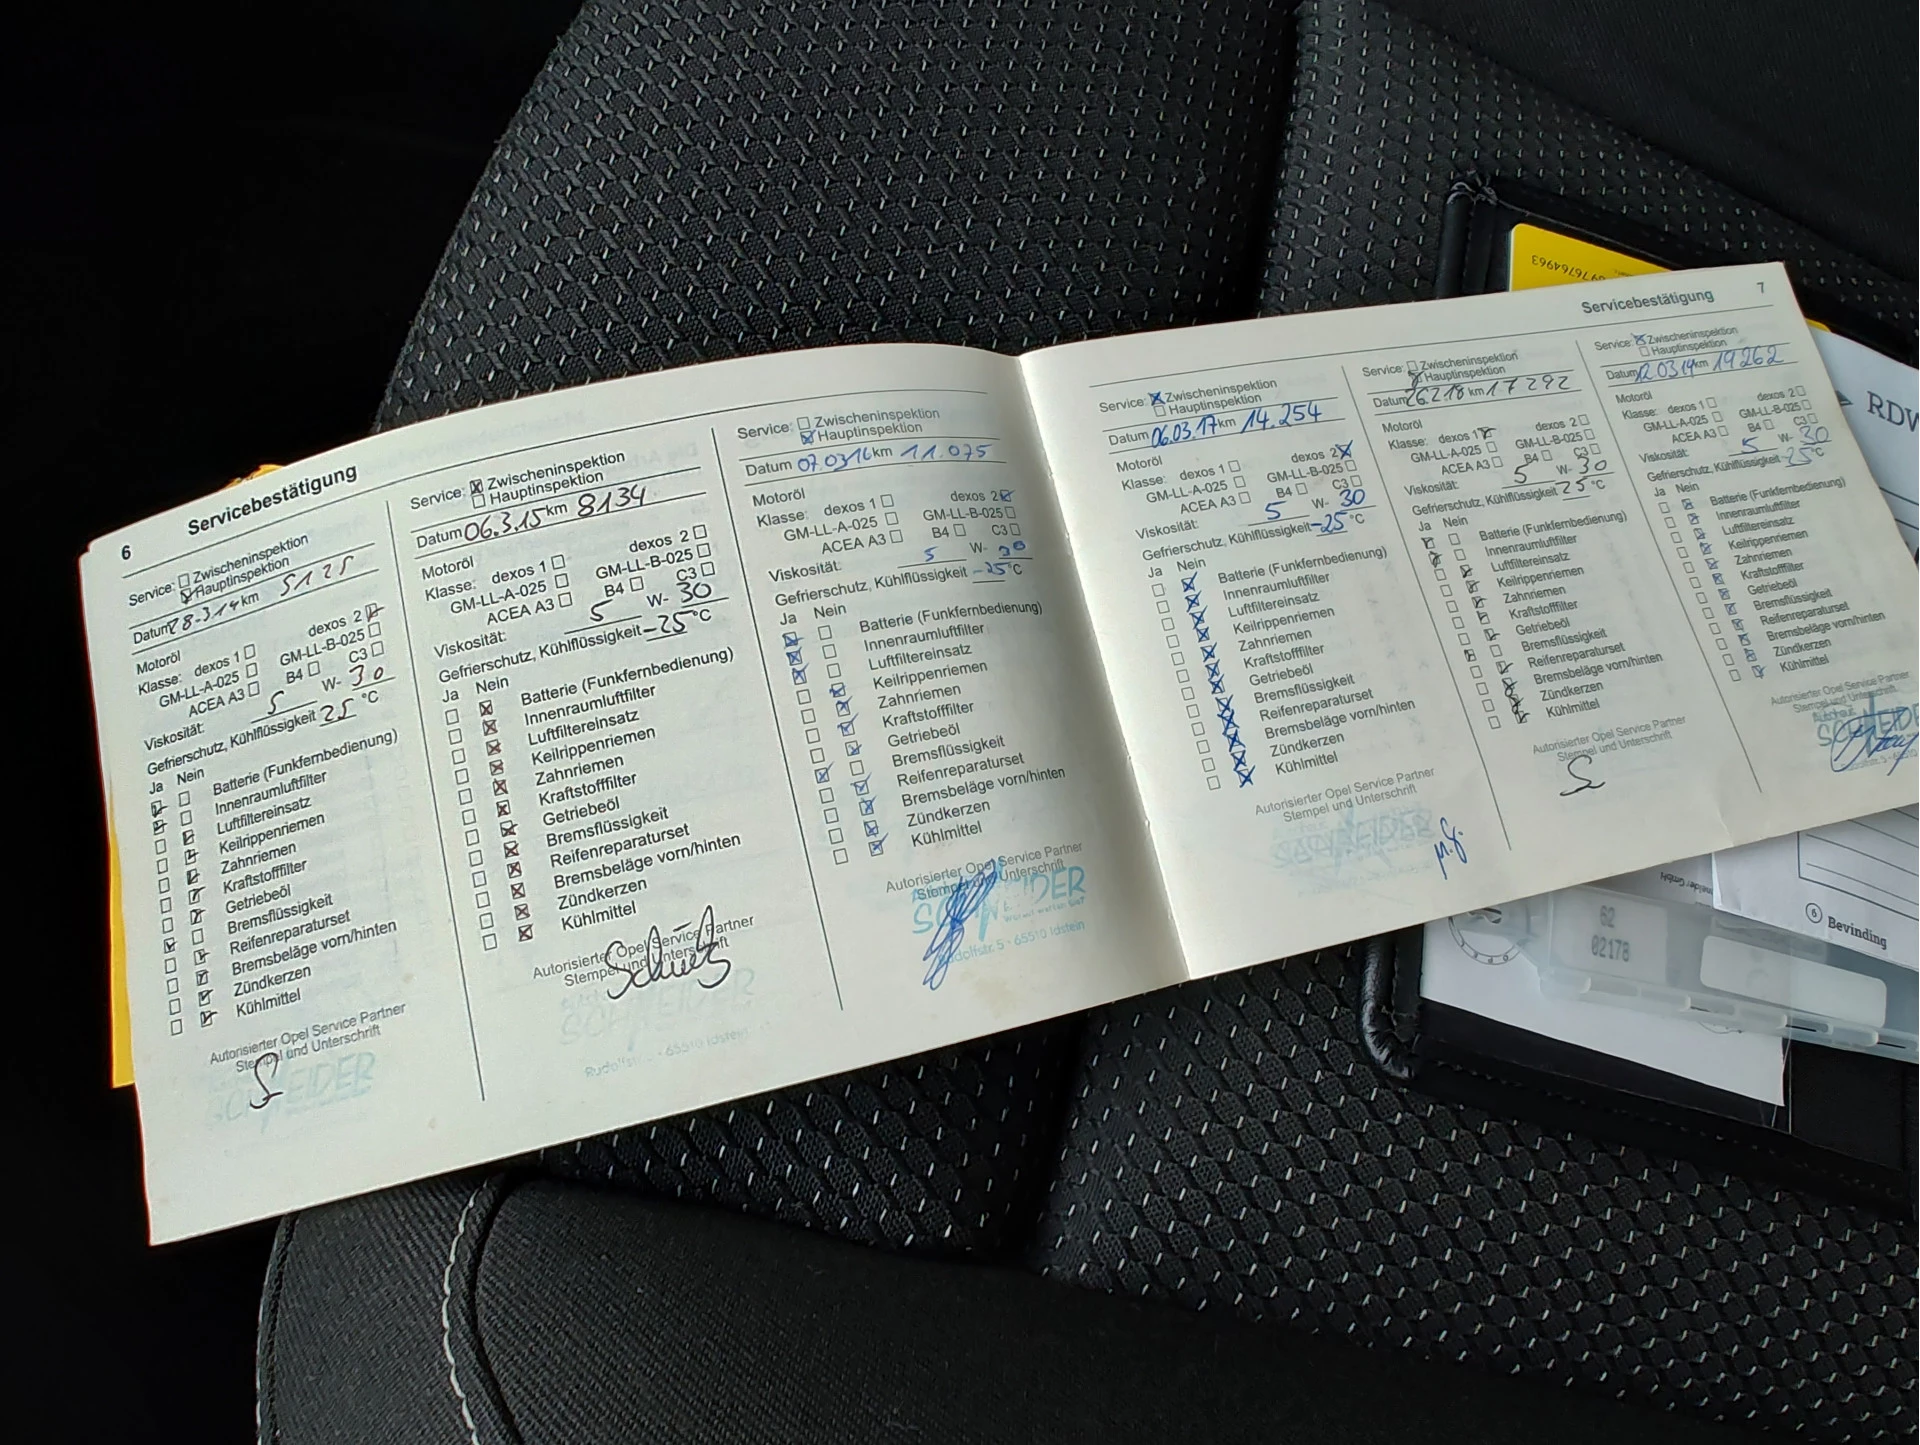 6
Servicebestätigung
Service: Zwischeninspektion
Hauptinspektion
Datum 28-3.14 km 5125
Motoröl
Klasse: dexos 1 dexos 2
GM-LL-A-025 GM-LL-B-025
ACEA A3 B4 C3
Viskosität: 5 W- 30
Gefrierschutz, Kühlflüssigkeit 25 °C
Ja Nein
Batterie (Funkfernbedienung)
Innenraumluftfilter
Luftfiltereinsatz
Keilrippenriemen
Zahnriemen
Kraftstofffilter
Getriebeöl
Bremsflüssigkeit
Reifenreparaturset
Bremsbeläge vorn/hinten
Zündkerzen
Kühlmittel
Autorisierter Opel Service Partner
Stempel und Unterschrift
SCHNEIDER
Service: Zwischeninspektion
Hauptinspektion
Datum 06.3.15 km 8134
Motoröl
Klasse: dexos 1 dexos 2
GM-LL-A-025 GM-LL-B-025
ACEA A3 B4 C3
Viskosität: 5 W- 30
Gefrierschutz, Kühlflüssigkeit -25 °C
Ja Nein
Batterie (Funkfernbedienung)
Innenraumluftfilter
Luftfiltereinsatz
Keilrippenriemen
Zahnriemen
Kraftstofffilter
Getriebeöl
Bremsflüssigkeit
Reifenreparaturset
Bremsbeläge vorn/hinten
Zündkerzen
Kühlmittel
Autorisierter Opel Service Partner
Stempel und Unterschrift
SCHNEIDER
65510 Idstein
Service: Zwischeninspektion
Hauptinspektion
Datum 07.03.16 km 11.075
Motoröl
Klasse: dexos 1 dexos 2
GM-LL-A-025 GM-LL-B-025
ACEA A3 B4 C3
Viskosität: 5 W- 30
Gefrierschutz, Kühlflüssigkeit -25 °C
Ja Nein
Batterie (Funkfernbedienung)
Innenraumluftfilter
Luftfiltereinsatz
Keilrippenriemen
Zahnriemen
Kraftstofffilter
Getriebeöl
Bremsflüssigkeit
Reifenreparaturset
Bremsbeläge vorn/hinten
Zündkerzen
Kühlmittel
Autorisierter Opel Service Partner
Stempel und Unterschrift
SCHNEIDER
Rudolfstr. 5 - 65510 Idstein
Servicebestätigung 7
Service: Zwischeninspektion
Hauptinspektion
Datum 06.03.17 km 14.254
Motoröl
Klasse: dexos 1 dexos 2
GM-LL-A-025 GM-LL-B-025
ACEA A3 B4 C3
Viskosität: 5 W- 30
Gefrierschutz, Kühlflüssigkeit -25 °C
Ja Nein
Batterie (Funkfernbedienung)
Innenraumluftfilter
Luftfiltereinsatz
Keilrippenriemen
Zahnriemen
Kraftstofffilter
Getriebeöl
Bremsflüssigkeit
Reifenreparaturset
Bremsbeläge vorn/hinten
Zündkerzen
Kühlmittel
Autorisierter Opel Service Partner
Stempel und Unterschrift
SCHNEIDER
Service: Zwischeninspektion
Hauptinspektion
Datum 26.2.18 km 17292
Motoröl
Klasse: dexos 1 dexos 2
GM-LL-A-025 GM-LL-B-025
ACEA A3 B4 C3
Viskosität: 5 W- 30
Gefrierschutz, Kühlflüssigkeit 25 °C
Ja Nein
Batterie (Funkfernbedienung)
Innenraumluftfilter
Luftfiltereinsatz
Keilrippenriemen
Zahnriemen
Kraftstofffilter
Getriebeöl
Bremsflüssigkeit
Reifenreparaturset
Bremsbeläge vorn/hinten
Zündkerzen
Kühlmittel
Autorisierter Opel Service Partner
Stempel und Unterschrift
Service: Zwischeninspektion
Hauptinspektion
Datum 12.03.19 km 19262
Motoröl
Klasse: dexos 1 dexos 2
GM-LL-A-025 GM-LL-B-025
ACEA A3 B4 C3
Viskosität: 5 W- 30
Gefrierschutz, Kühlflüssigkeit -25 °C
Ja Nein
Batterie (Funkfernbedienung)
Innenraumluftfilter
Luftfiltereinsatz
Keilrippenriemen
Zahnriemen
Kraftstofffilter
Getriebeöl
Bremsflüssigkeit
Reifenreparaturset
Bremsbeläge vorn/hinten
Zündkerzen
Kühlmittel
Autorisierter Opel Service Partner
Stempel und Unterschrift
RDW
6 Bevinding
62
02178